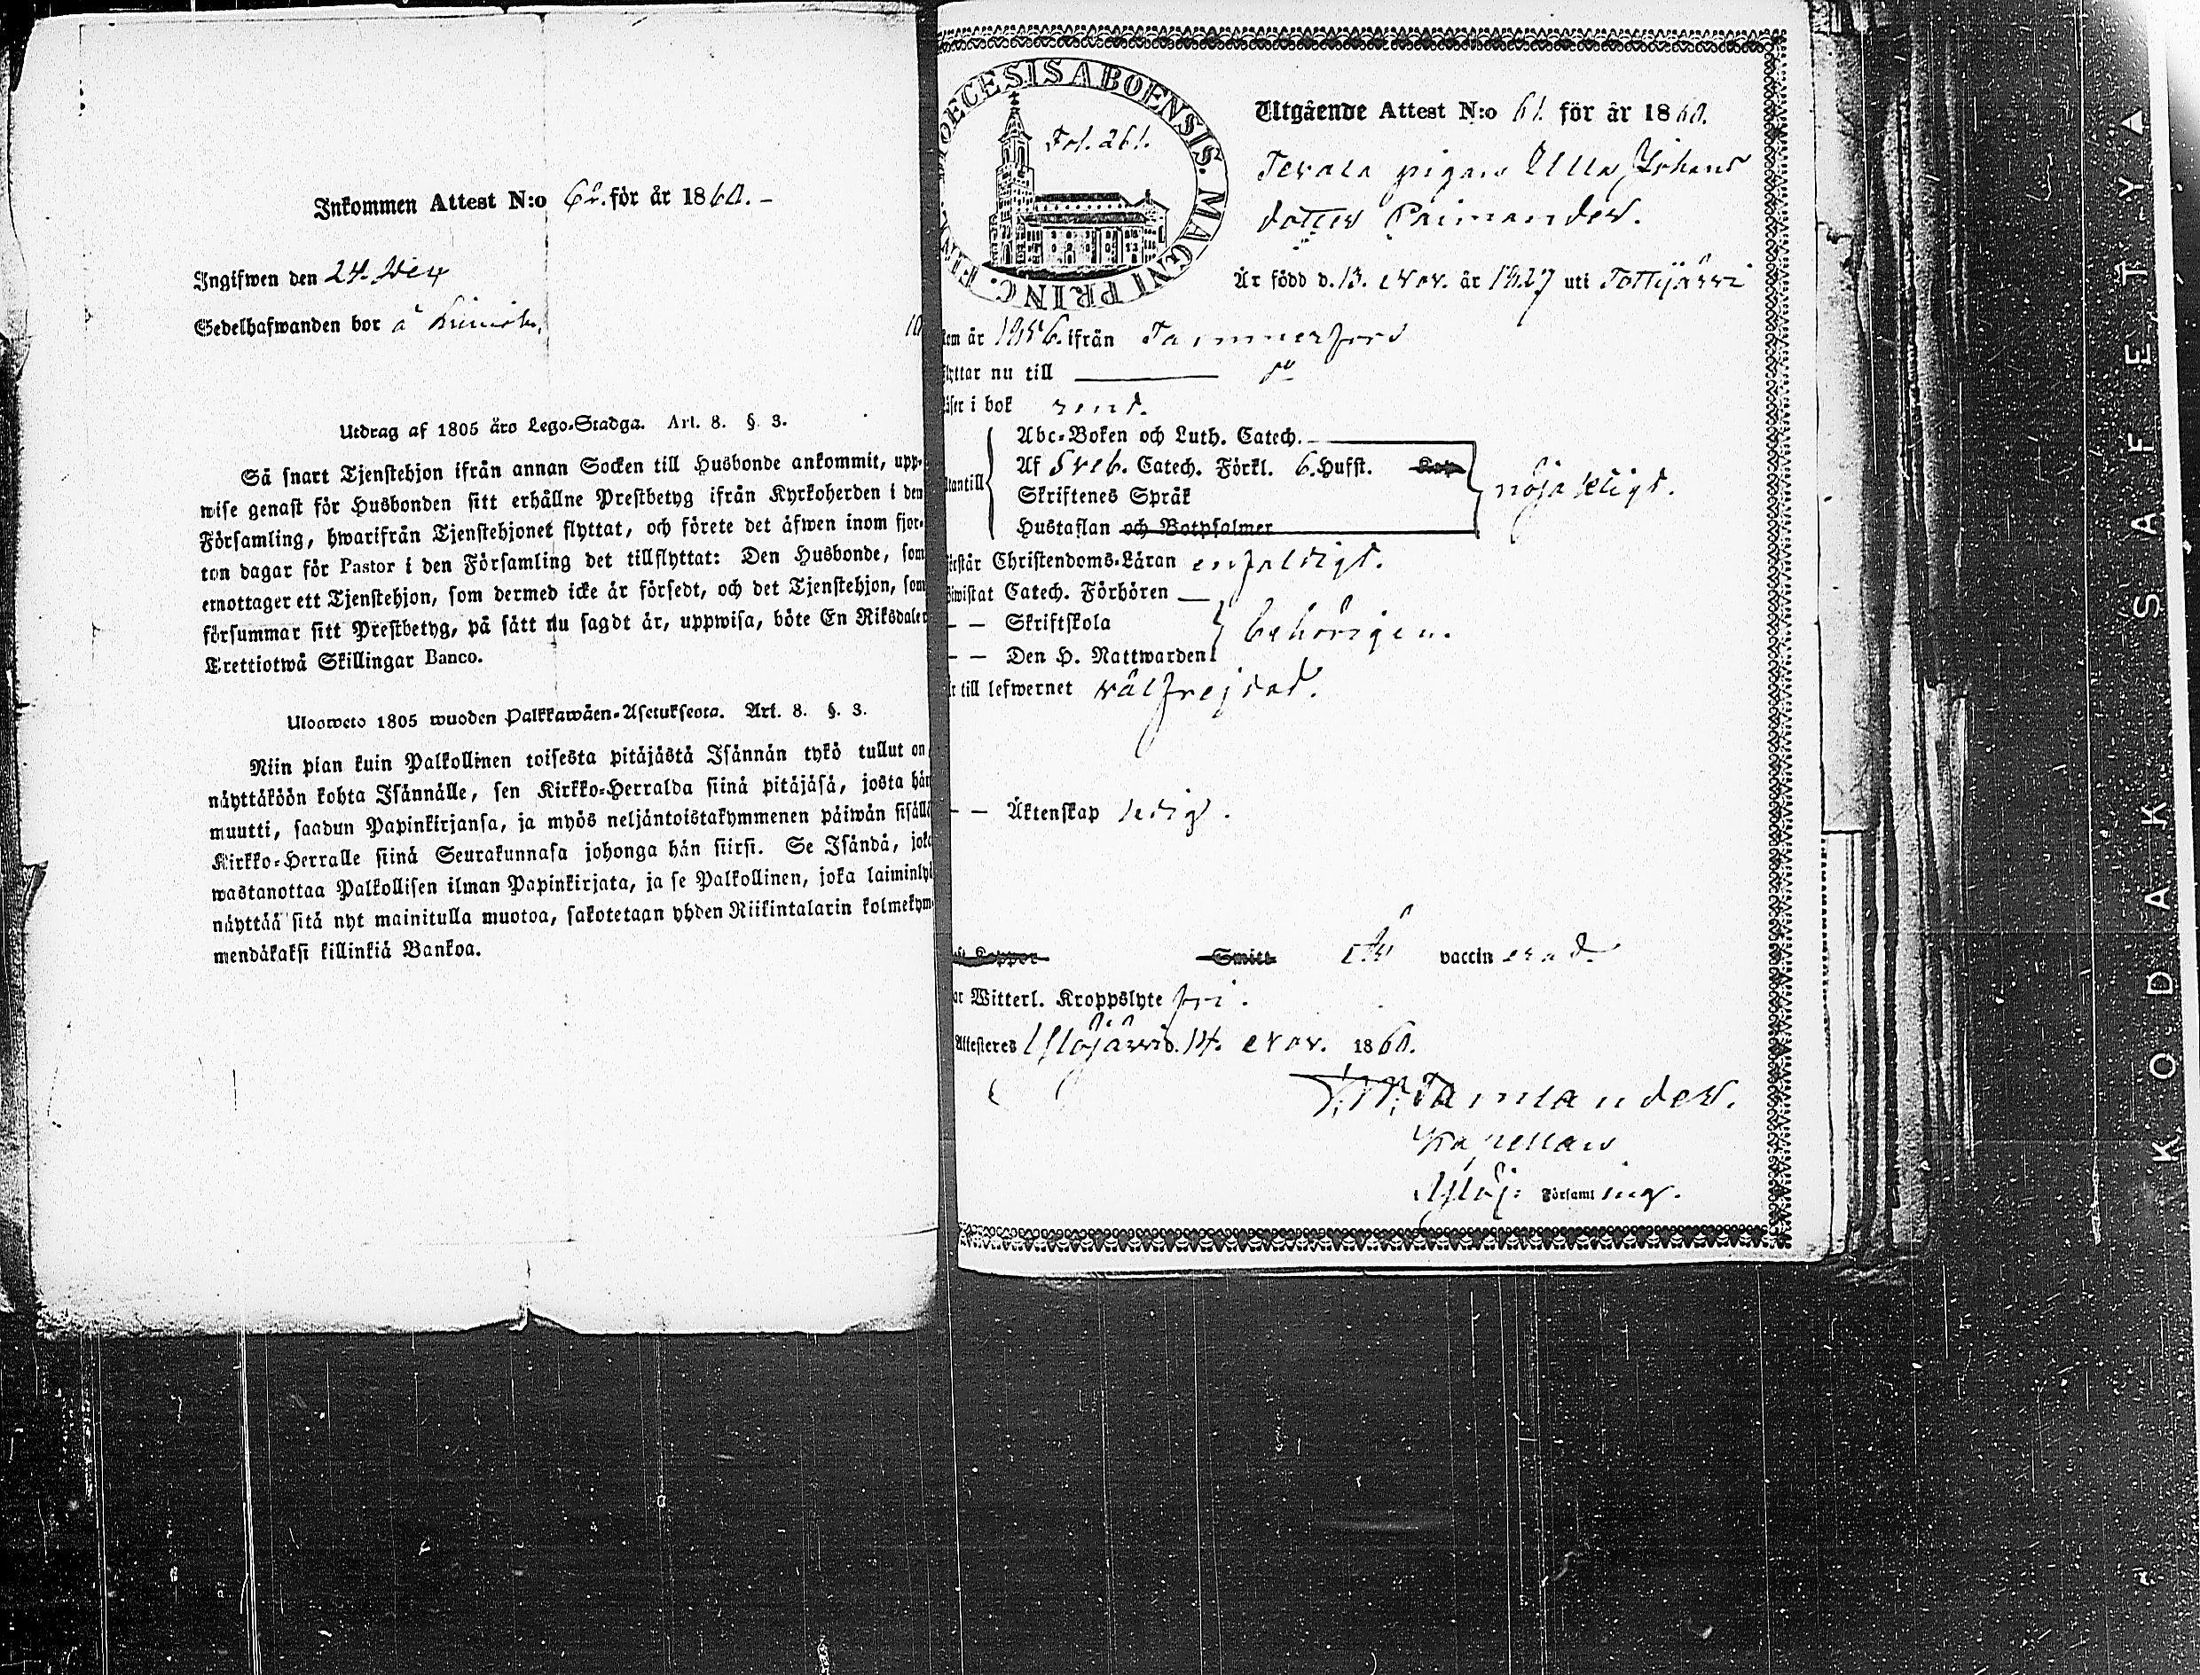 Inkommen Attest N:o 62. för år 1860. –
Ingifwen den 24. Dec
Sedelhafwanden bor å
Utdrag af 1805 års Lego-Stadga. Art. 8. §. 3.
Så snart Tjenstehjon ifrån annan Socken till Husbonde ankommit, upp-
wise genast för Husbonden sitt erhållne Prestbetyg ifrån Kyrkoherden i den
Församling, hwarifrån Tjenstehjonet flyttat, och förete det äfwen inom fjor-
ton dagar för Pastor i den Församling det tillflyttat: Den Husbonde, som
emottager ett Tjenstehjon, som dermed icke är försedt, och det Tjenstehjon, som
försummar sitt Prestbetyg, på sätt nu sagdt är, uppwisa, böte En Riksdaler
Trettiotwå Skillingar Banco.
Ulosweto 1805 wuoden Palkkawäen-Asetuksesta. Art. 8. §. 3.
Niin pian kuin Palkollinen toisesta pitäjästä Isännän tykö tullut on
näyttäköön kohta Isännälle, sen Kirkko-Herralda siinä pitäjäsä, josta hän
muutti, saadun Papinkirjansa, ja myös neljäntoistakymmenen päiwän sisällä
Kirkko-Herralle siinä Seurakunnasa johonga hän siirsi. Se Isändä, joka
wastanottaa Palkollisen ilman Papinkirjata, ja se Palkollinen, joka laiminlyö
näyttää sitä nyt mainitulla muotoa, sakotetaan yhden Riikintalarin kolmekym-
mendäkaksi killinkiä Bankoa.
DIOECESIS ABOENSIS. MAGNI PRINC. FINL.
Fol. 261.
Utgående Attest N:o 61. för år 1860.
pigan Ulla Johans
dotter
Är född d. 13. Nov. år 1827 uti Tottijärvi
kom år 1856. ifrån Tammerfors
flyttar nu till ——— do
läser i bok rent.
utantill
Abc-Boken och Luth. Catech.
Af Sveb. Catech. Förkl. 6. Hufst.
Skriftenes Språk
Hustaflan och Botpsalmer
nöjaktigt.
förstår Christendoms-Läran enfaldigt.
biwistat Catech. Förhören —
— — Skriftskola
— — Den H. Nattwarden
behörigen.
är till lefwernet välfrejdad.
— — Äktenskap ledig.
haft Koppor Smitt vaccinerad.
har Witterl. Kroppslyte fri.
Attesteres Ylöjärvi d. 14. Nov. 1860.
Tamlander.
Kapellan
Ylöj. Församling.
KODAK SAFETY ▲